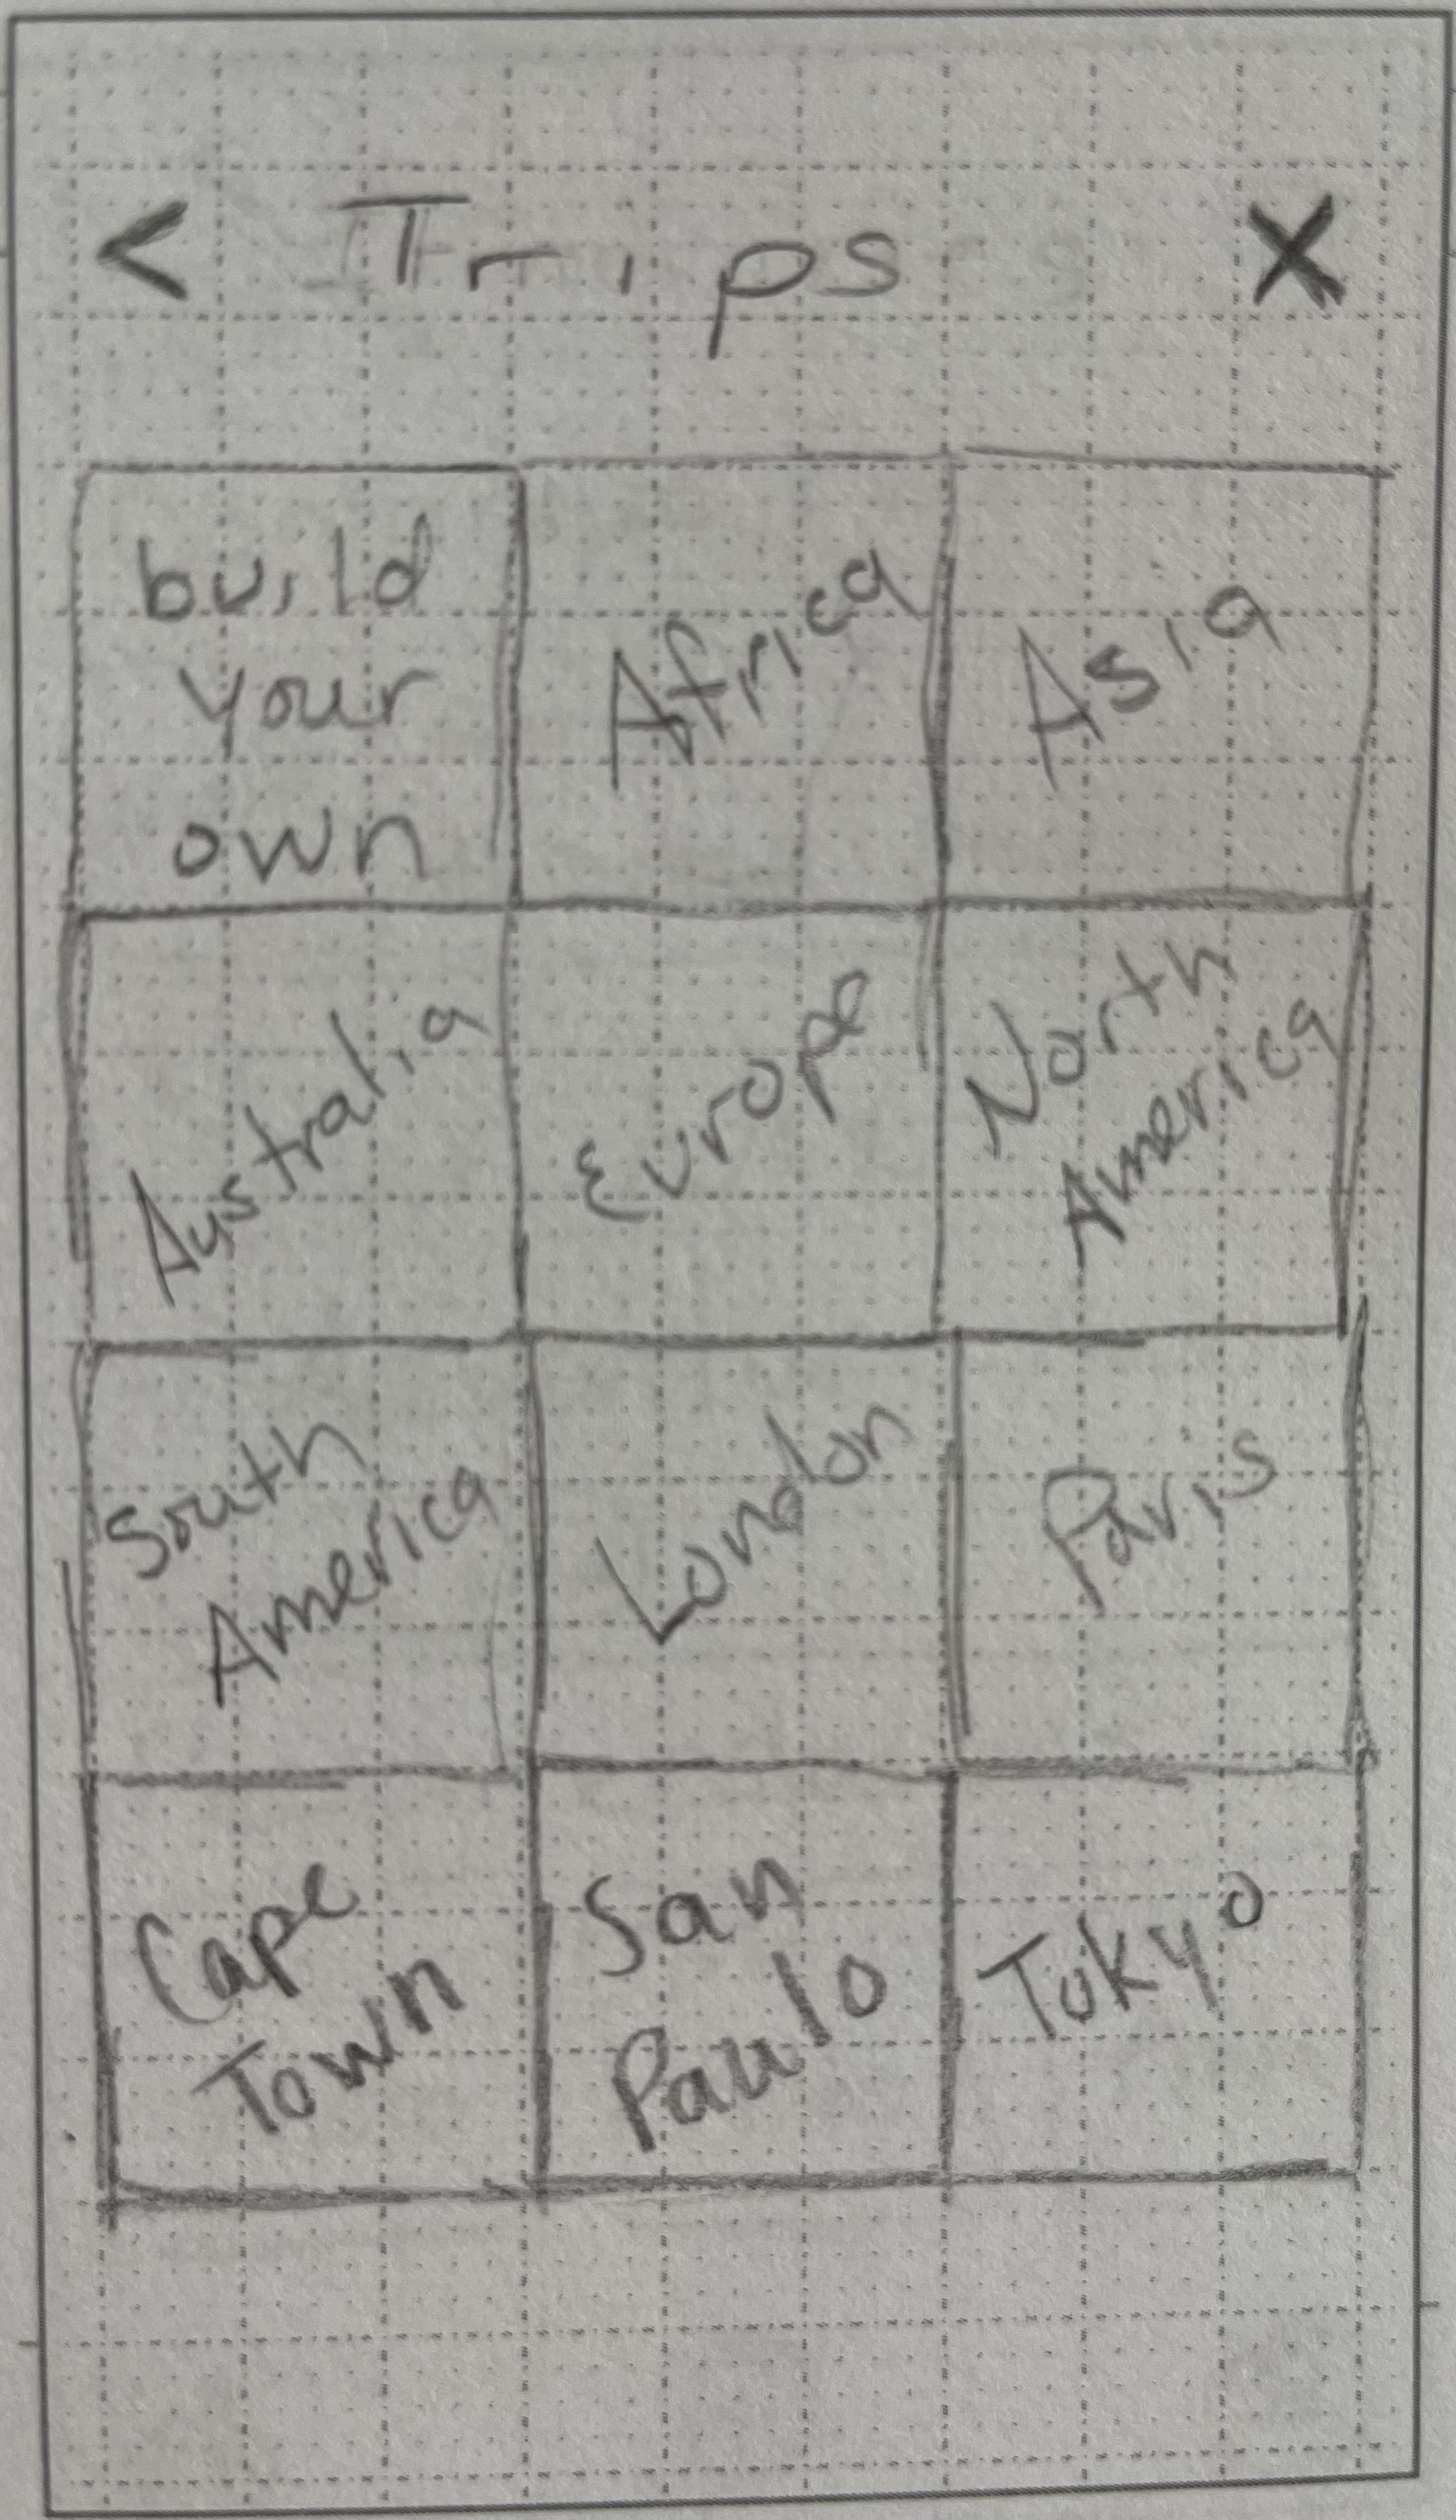 < Trips X
build
your
own
Africa
Asia
Australia
Europe
North
America
South
America
London
Paris
Cape
Town
San
Paulo
Tokyo